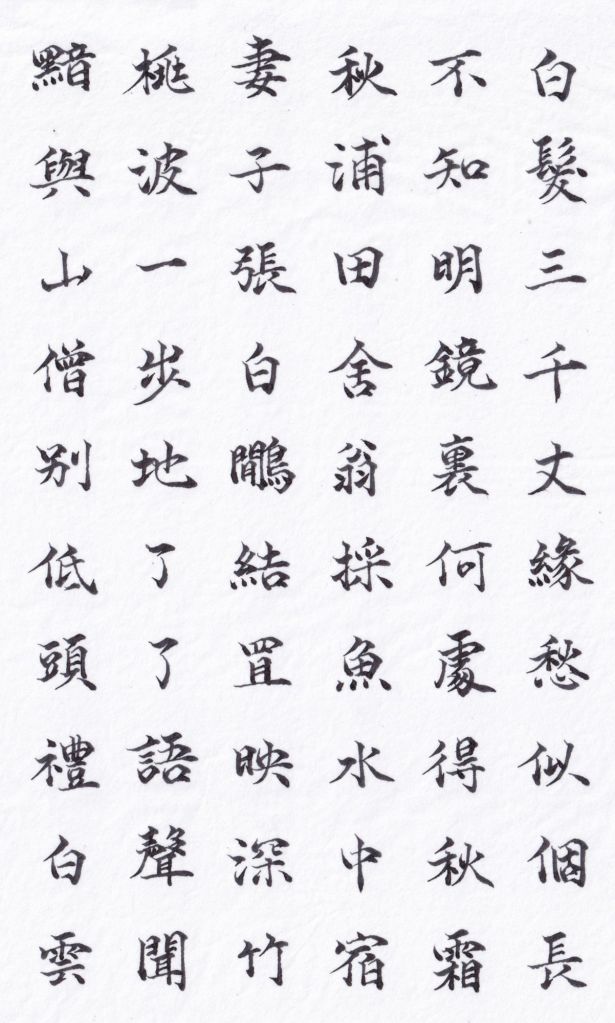 白髮三千丈緣愁似個長
不知明鏡裏何處得秋霜
秋浦田舍翁採魚水中宿
妻子張白鷴結罝映深竹
桃波一步地了了語聲聞
黯與山僧別低頭禮白雲